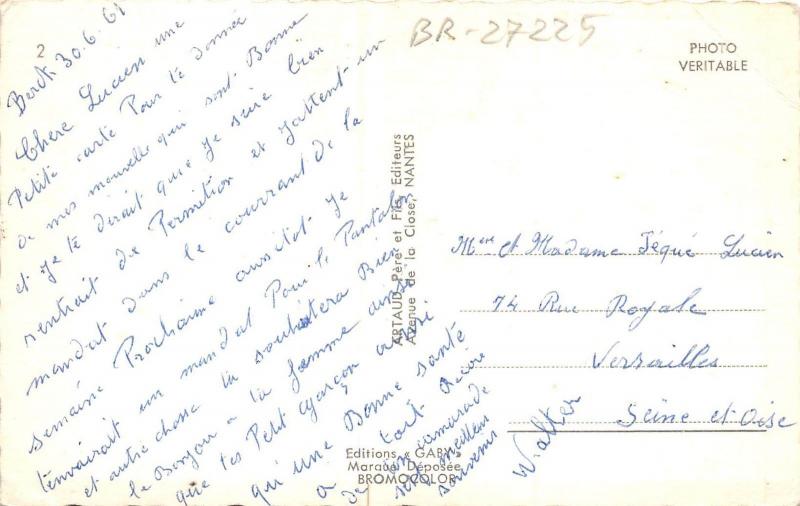 BR-27225
2
PHOTO
VERITABLE
30.6.61
Chere Lucien une
Petite carte Pour te donnée
de mes nouvelle qui sont Bonne
et je te dirait que je suis bien
rentrait de Permition et j'attent un
mandat dans le courrant de la
semaine Prochaine aussitot je
t'envairait un mandat Pour le Pantalon
et autre chose tu souhaitera Bien
le Bonjour a la femme ainsi
que tes Petit garçon aussi
qu'une Bonne santé
a tout
de ton camarade
meilleur
souvenir
Walter
ARTAUD Père et Fils, Editeurs
Avenue de la Close, NANTES
Editions « GABY »
Marque Déposée
BROMOCOLOR
Mere et Madame Féqué Lucien
74 Rue Royale
Versailles
Seine et Oise